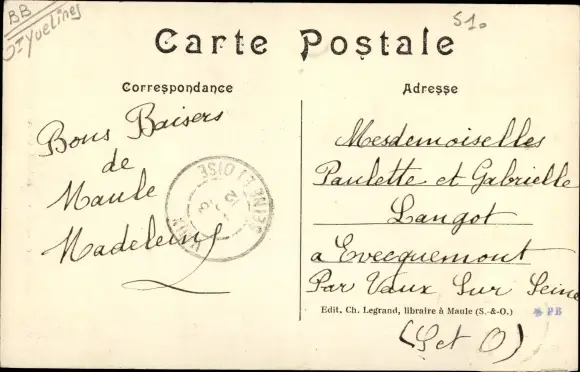 BB
Yvelines
51.
Carte Postale
Correspondance
Adresse
Bons Baisers
de
Maule
Madeleine
SEINE ET OISE
Mesdemoiselles
Paulette et Gabrielle
Langot
a Evecquemont
Par Vaux Sur Seine
Edit. Ch. Legrand, libraire à Maule (S.-&-O.)
PB
(S et O)